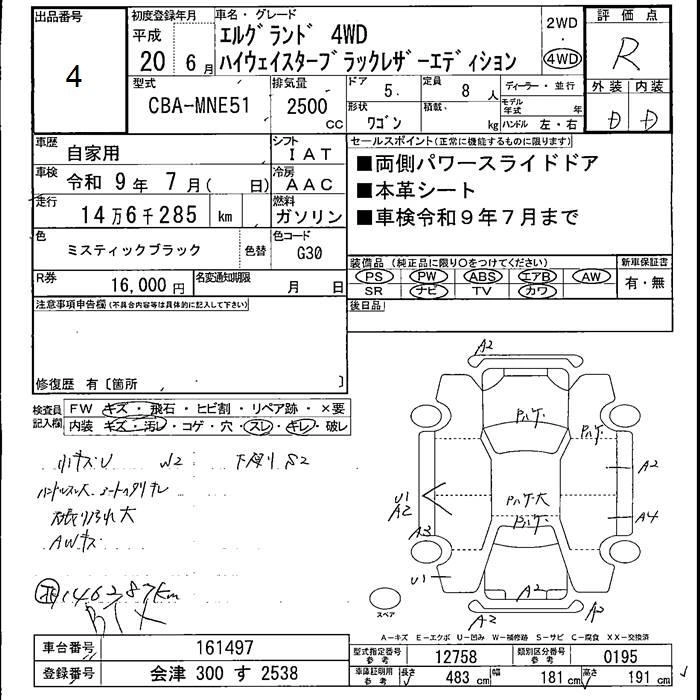 出品番号
4
初度登録年月
平成
20 6月
車名・グレード
エルグランド 4WD
ハイウェイスターブラックレザーエディション
2WD
・
4WD
評価点
R
外装 内装
D D
型式
CBA-MNE51
排気量
2500
CC
ドア
5
定員
8 人
形状
ワゴン
積載
kg
ディーラー・並行
モデル年式 年
ハンドル 左・右
車歴
自家用
シフト
IAT
車検
令和 9年 7月( 日)
冷房
AAC
走行
14万6千285 km
燃料
ガソリン
色
ミスティックブラック
色替
色コード
G30
R券
16,000 円
名変通知期限
月 日
セールスポイント(正常に機能するものに限ります)
■両側パワースライドドア
■本革シート
■車検令和9年7月まで
装備品(純正品に限り○をつけてください)
PS PW ABS エアB AW
SR ナビ TV カワ
新車保証書
有・無
後日品
注意事項申告欄(不具合内容等は具体的に記入して下さい)
修復歴 有〔箇所 〕
検査員記入欄
FW キズ・飛石・ヒビ割・リペア跡・×要
内装 キズ・汚レ・コゲ・穴・スレ・キレ・破レ
小キズU W2 下廻り S2
ハンドルスレ大
シートヘタリキレ
AWキズ
146287km
A2
Pハゲ
Pハゲ
A2
Pハゲ大
U1
A2
A4
Pハゲ
A3
U1
A2
A2
A2
スペア
A-キズ E-エクボ U-凹み W-補修跡 S-サビ C-腐食 XX-交換済
車台番号
161497
登録番号
会津 300 す 2538
型式指定番号
参考
12758
類別区分番号
参考
0195
車庫証明用
参考
長さ
483 cm
幅
181 cm
高さ
191 cm